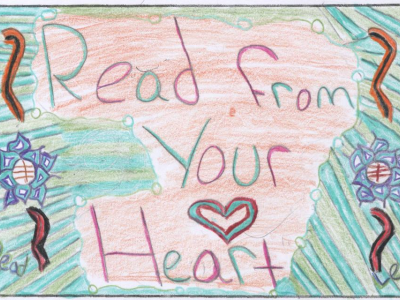 Read from
Your
Heart